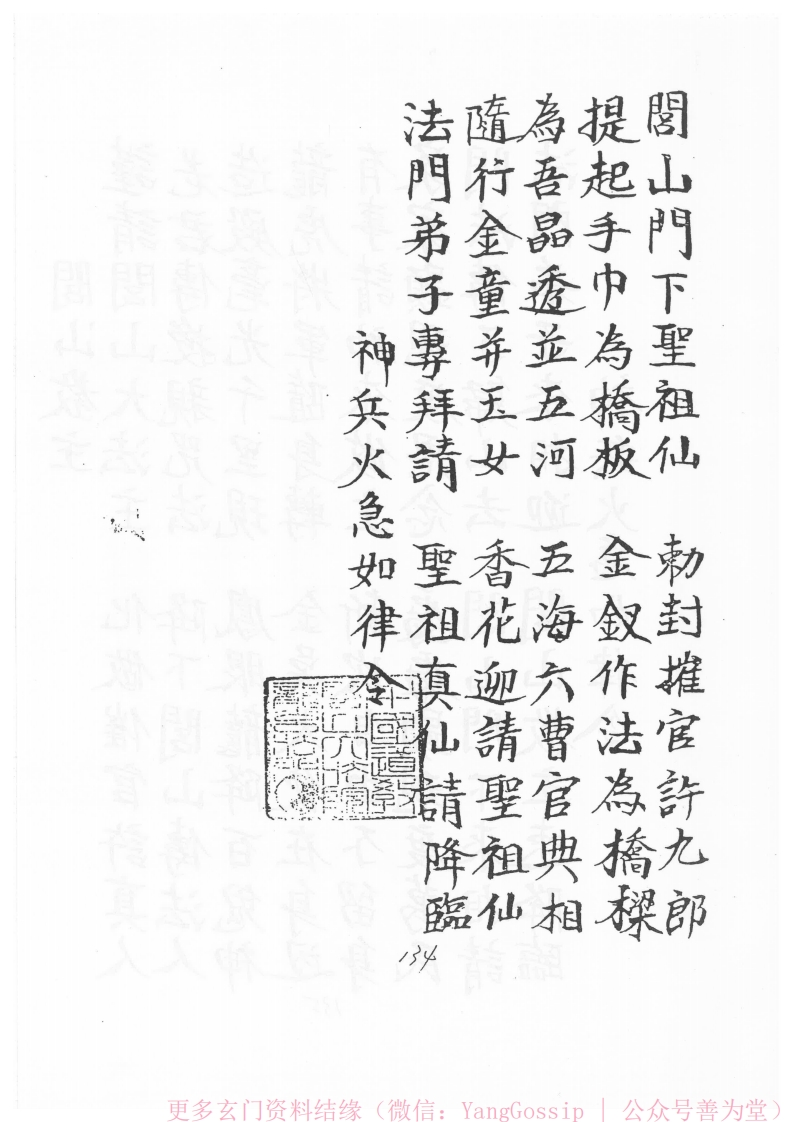 閭山門下聖祖仙 勅封摧官許九郎
提起手巾為橋板 金釵作法為橋樑
為吾晶透並五河 五海六曹官典相
隨行金童并玉女 香花迎請聖祖仙
法門弟子專拜請 聖祖真仙請降臨
神兵火急如律令
134
更多玄门资料结缘（微信：YangGossip | 公众号善为堂）